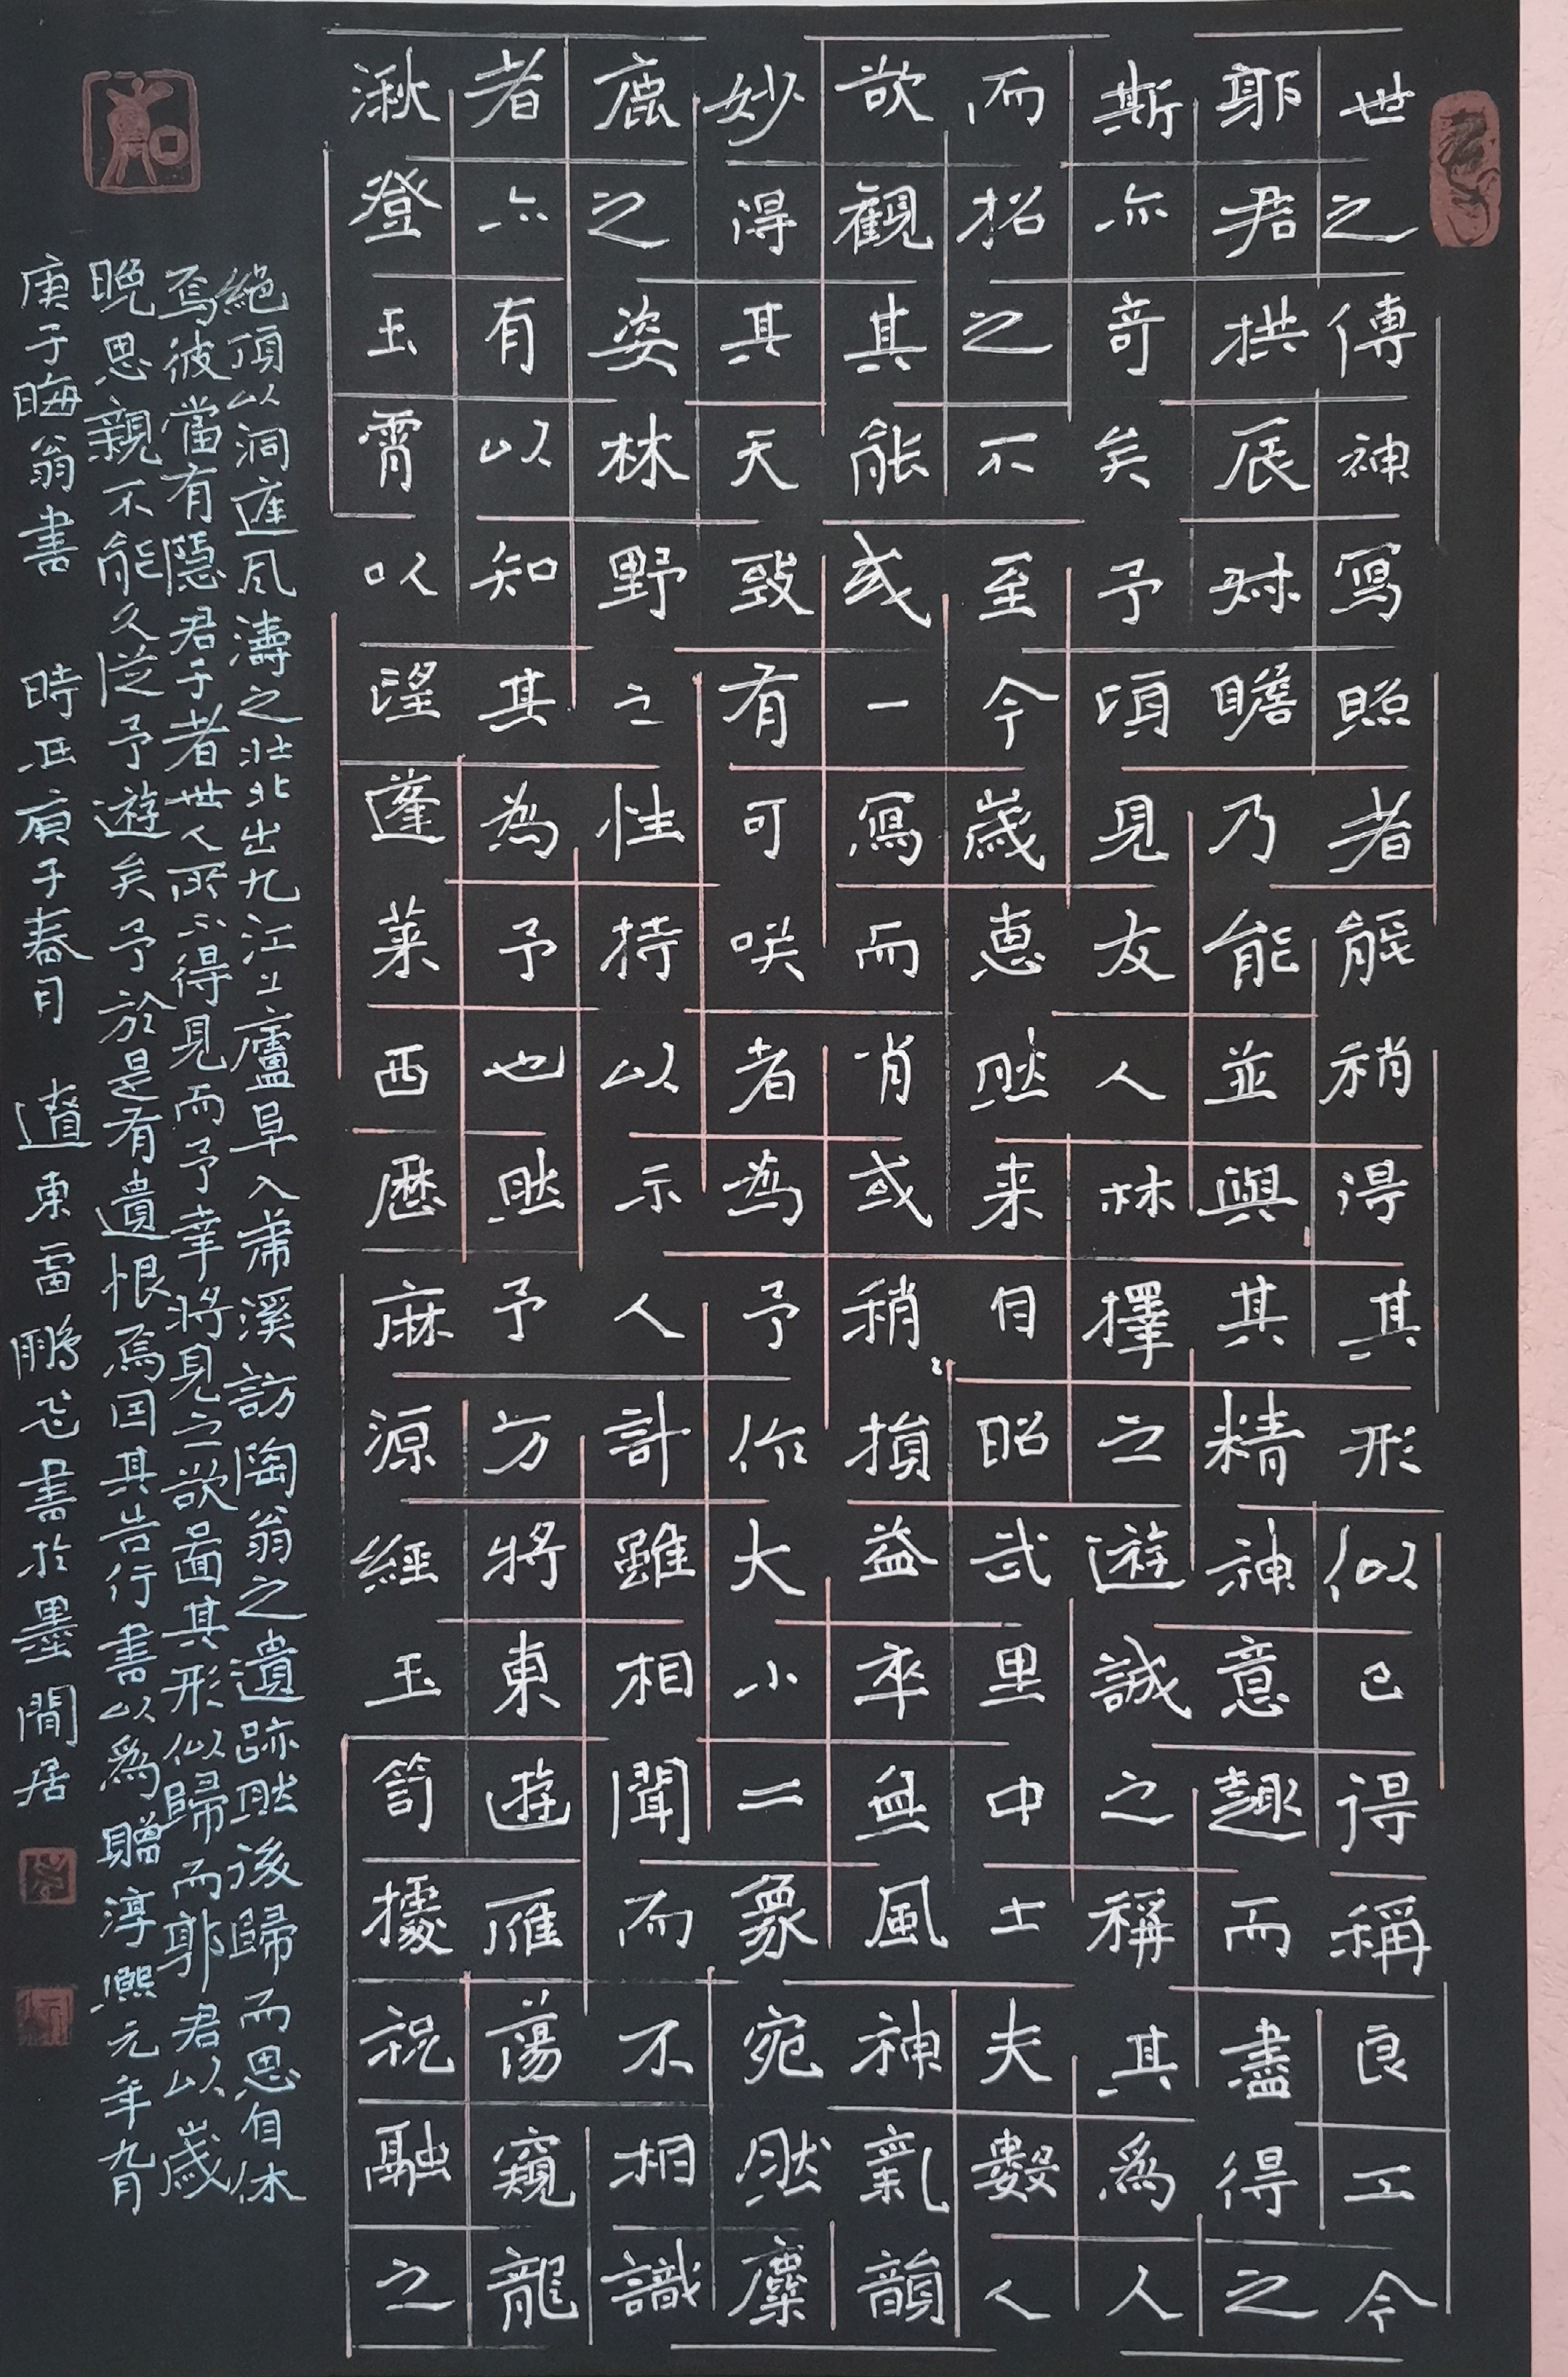 世之傳神寫照者能稍得其形似已得稱良工今
郭君拱辰叔瞻乃能並與其精神意趣而盡得之
斯亦奇矣予頃見友人林擇之遊誠之稱其為人
而招之不至今歲惠然来自昭武里中士夫數人
欲觀其能或一寫而肖或稍損益卒無風神氣韻
妙得其天致有可咲者為予作大小二象宛然麋
鹿之姿林野之性持以示人計雖相聞而不相識
者亦有以知其為予也然予方將東遊雁蕩窺龍
湫登玉霄以望蓬萊西歷麻源經玉笥據祝融之
絕頂以洞庭風濤之壯北出九江上廬阜入虎溪訪陶翁之遺跡然後歸而思自休
焉彼當有隱君子者世人所不得見而予幸將見之欲圖其形以歸而郭君以歲
晚思親不能久從予遊矣予於是有遺恨焉因其告行書以為贈淳熙元年九月
庚子晦翁書 時在庚子春月 遼東雷鵬飛書於墨閒居